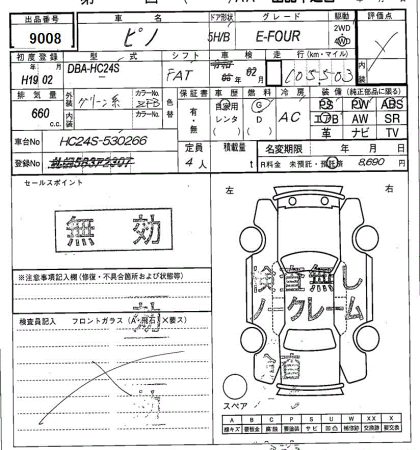 出品番号 車名 ドア形状 グレード 駆動 評価点
9008 ピノ 5H/B E-FOUR 2WD 4WD
初度登録 型式 シフト 車検 走行(km・マイル) 内装
年 月 DBA-HC24S FAT 年 月
H19 02 05 02 005503
排気量 外装 グリーン系 カラーNo. ZFB 色替 保証書 車歴 燃料 冷房 装備(純正部品に限る)
660 c.c. 内装 カラーNo. 有・無 自家用 レンタ ( ) G D ( ) AC PS PW ABS
エアB AW SR
革 ナビ TV
車台No HC24S-530266 定員 積載量 名変期限 年 月 日
登録No 4人 t R料金 未預託・預託済 8,690 円
セールスポイント 左 右
無効
検査無し
ノークレーム
※注意事項記入欄(修復・不具合箇所および状態等)
検査員記入 フロントガラス(A・飛石 X要ス)
スペア
A B C P S U W XX X
線キズ 要板金 腐蝕 要塗装 サビ 凹凸 補修跡 交換跡 要交換